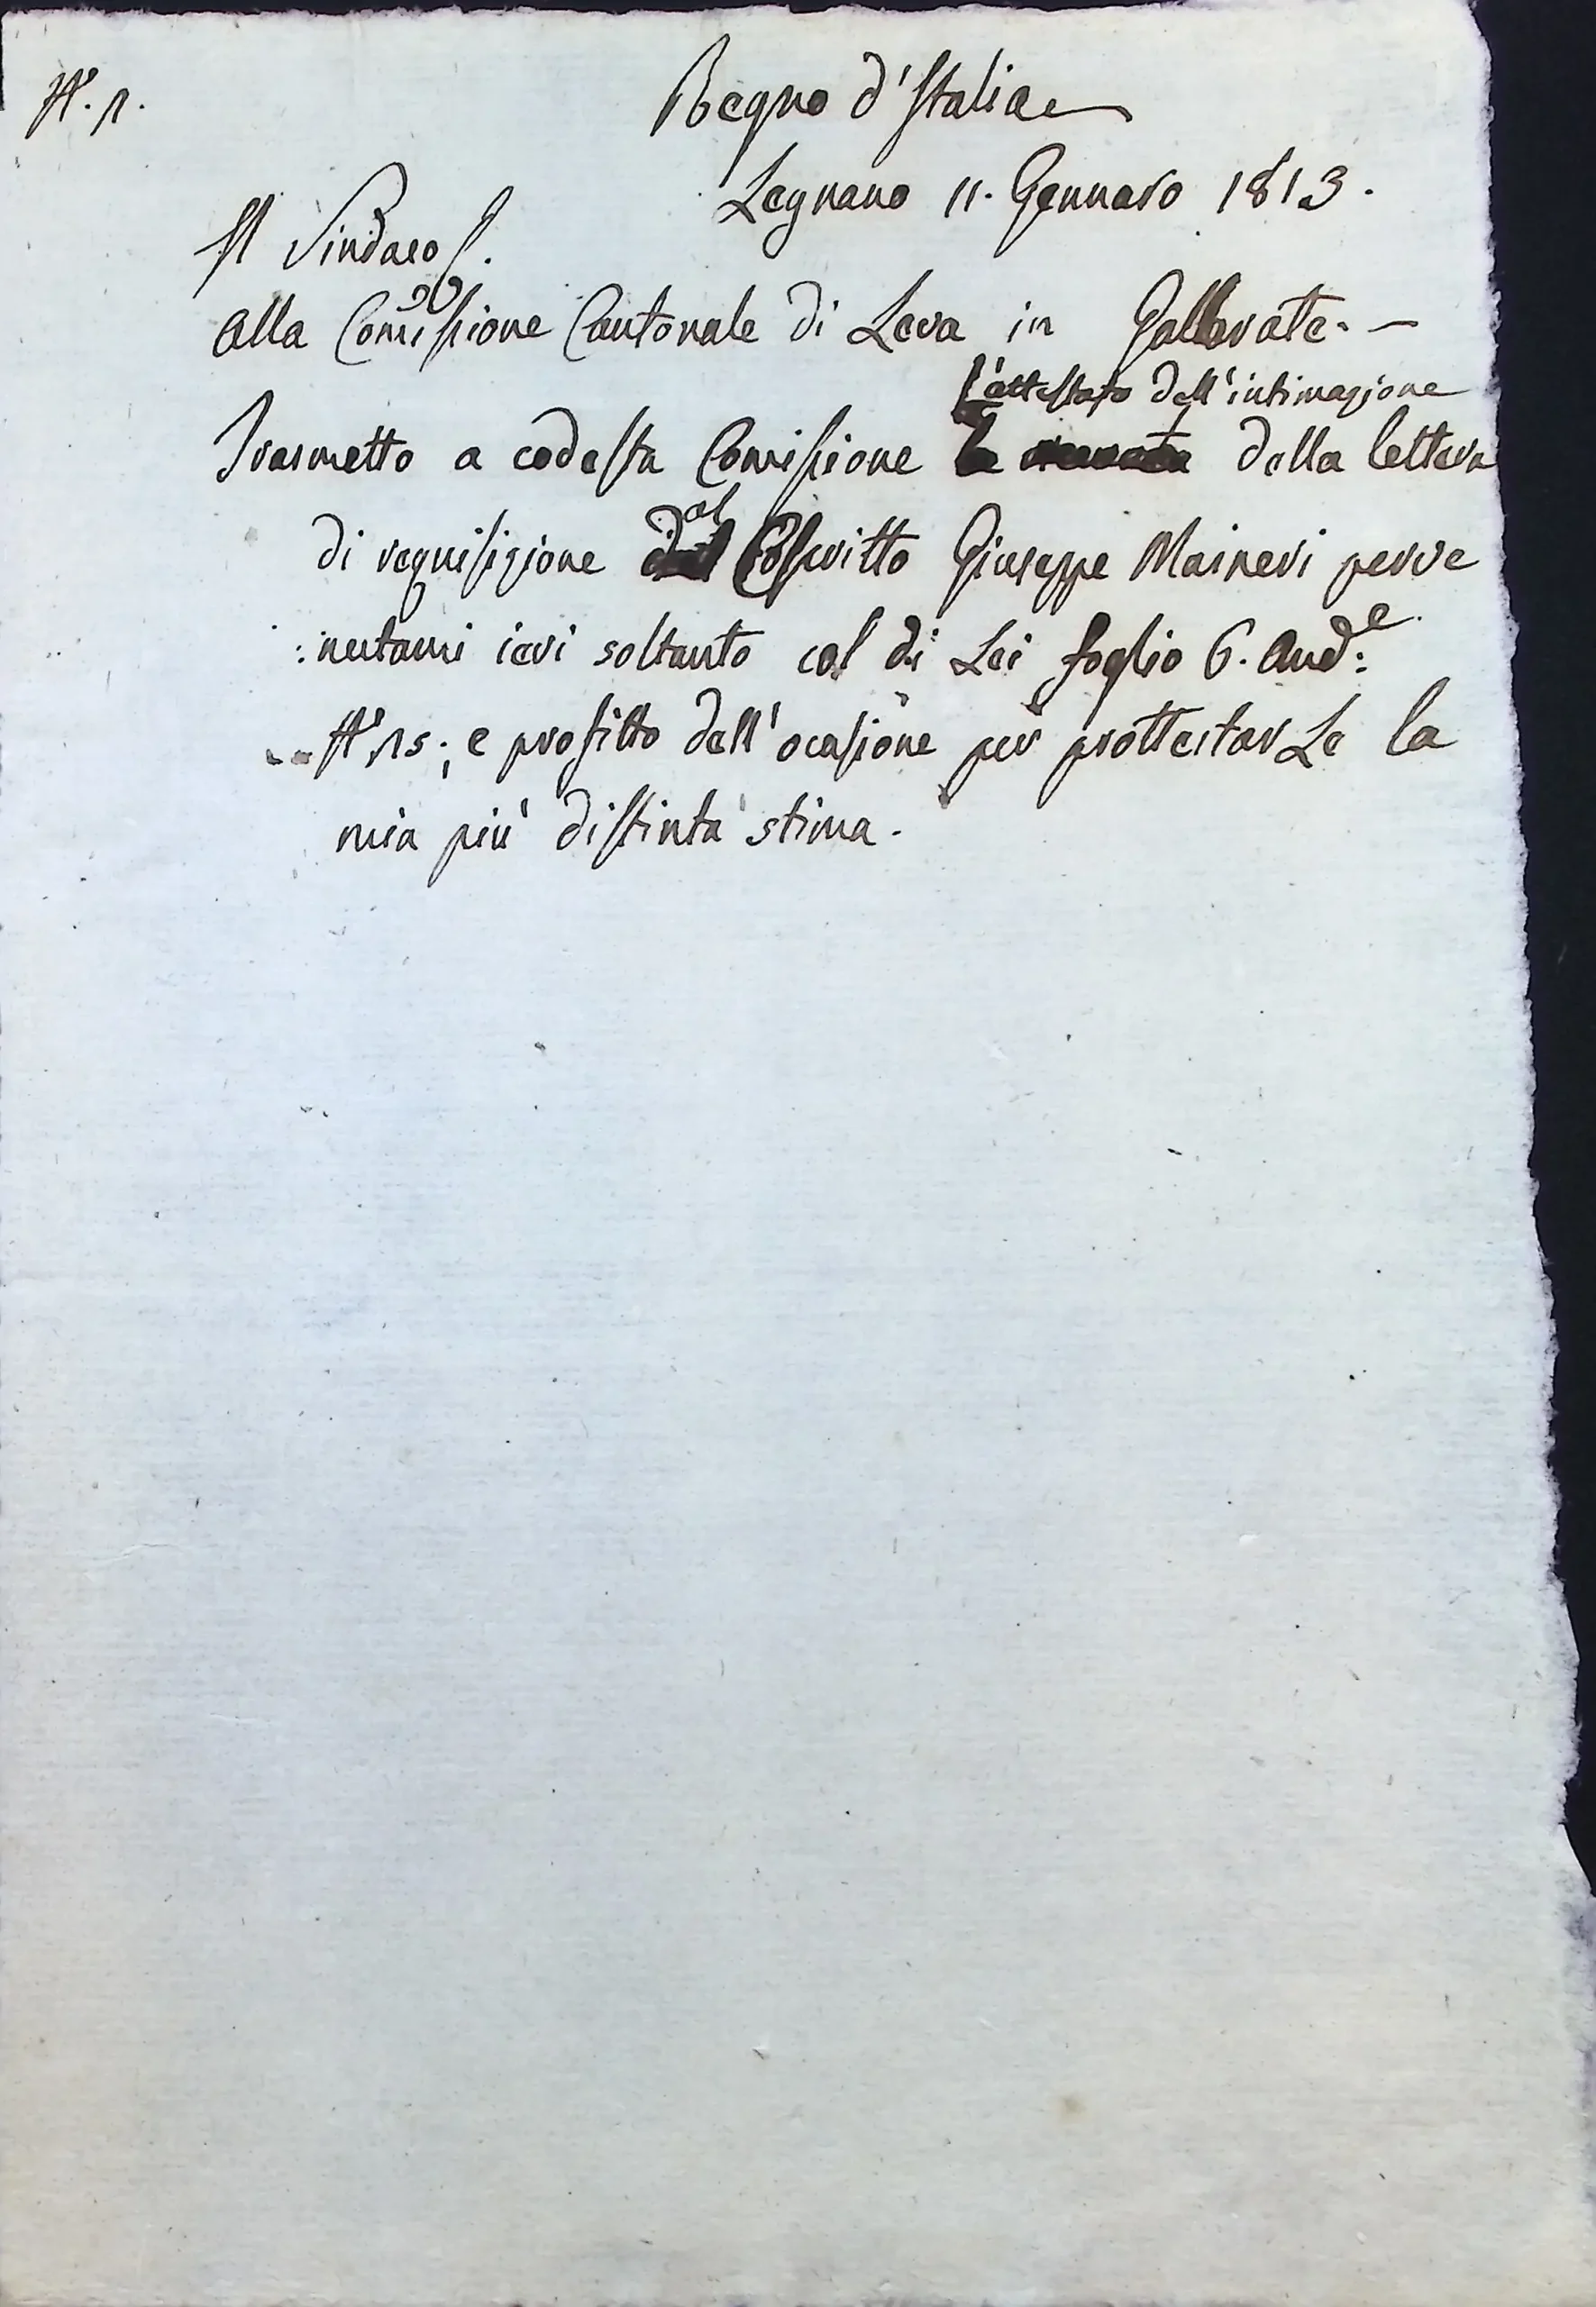 N.° 1.
Regno d'Italia
Legnano 11. Gennaro 1813.
Il Sindaco
Alla Comissione Cantonale di Leva in Gallarate. —
l'attestato dell'intimazione
Trasmetto a codesta Comissione della lettera
di requisizione al Coscritto Giuseppe Maineri perve
:nutami ieri soltanto col di Lei foglio 6. And.e
N.° 15; e profitto dell'ocasione per prottestarLe la
mia più distinta stima.